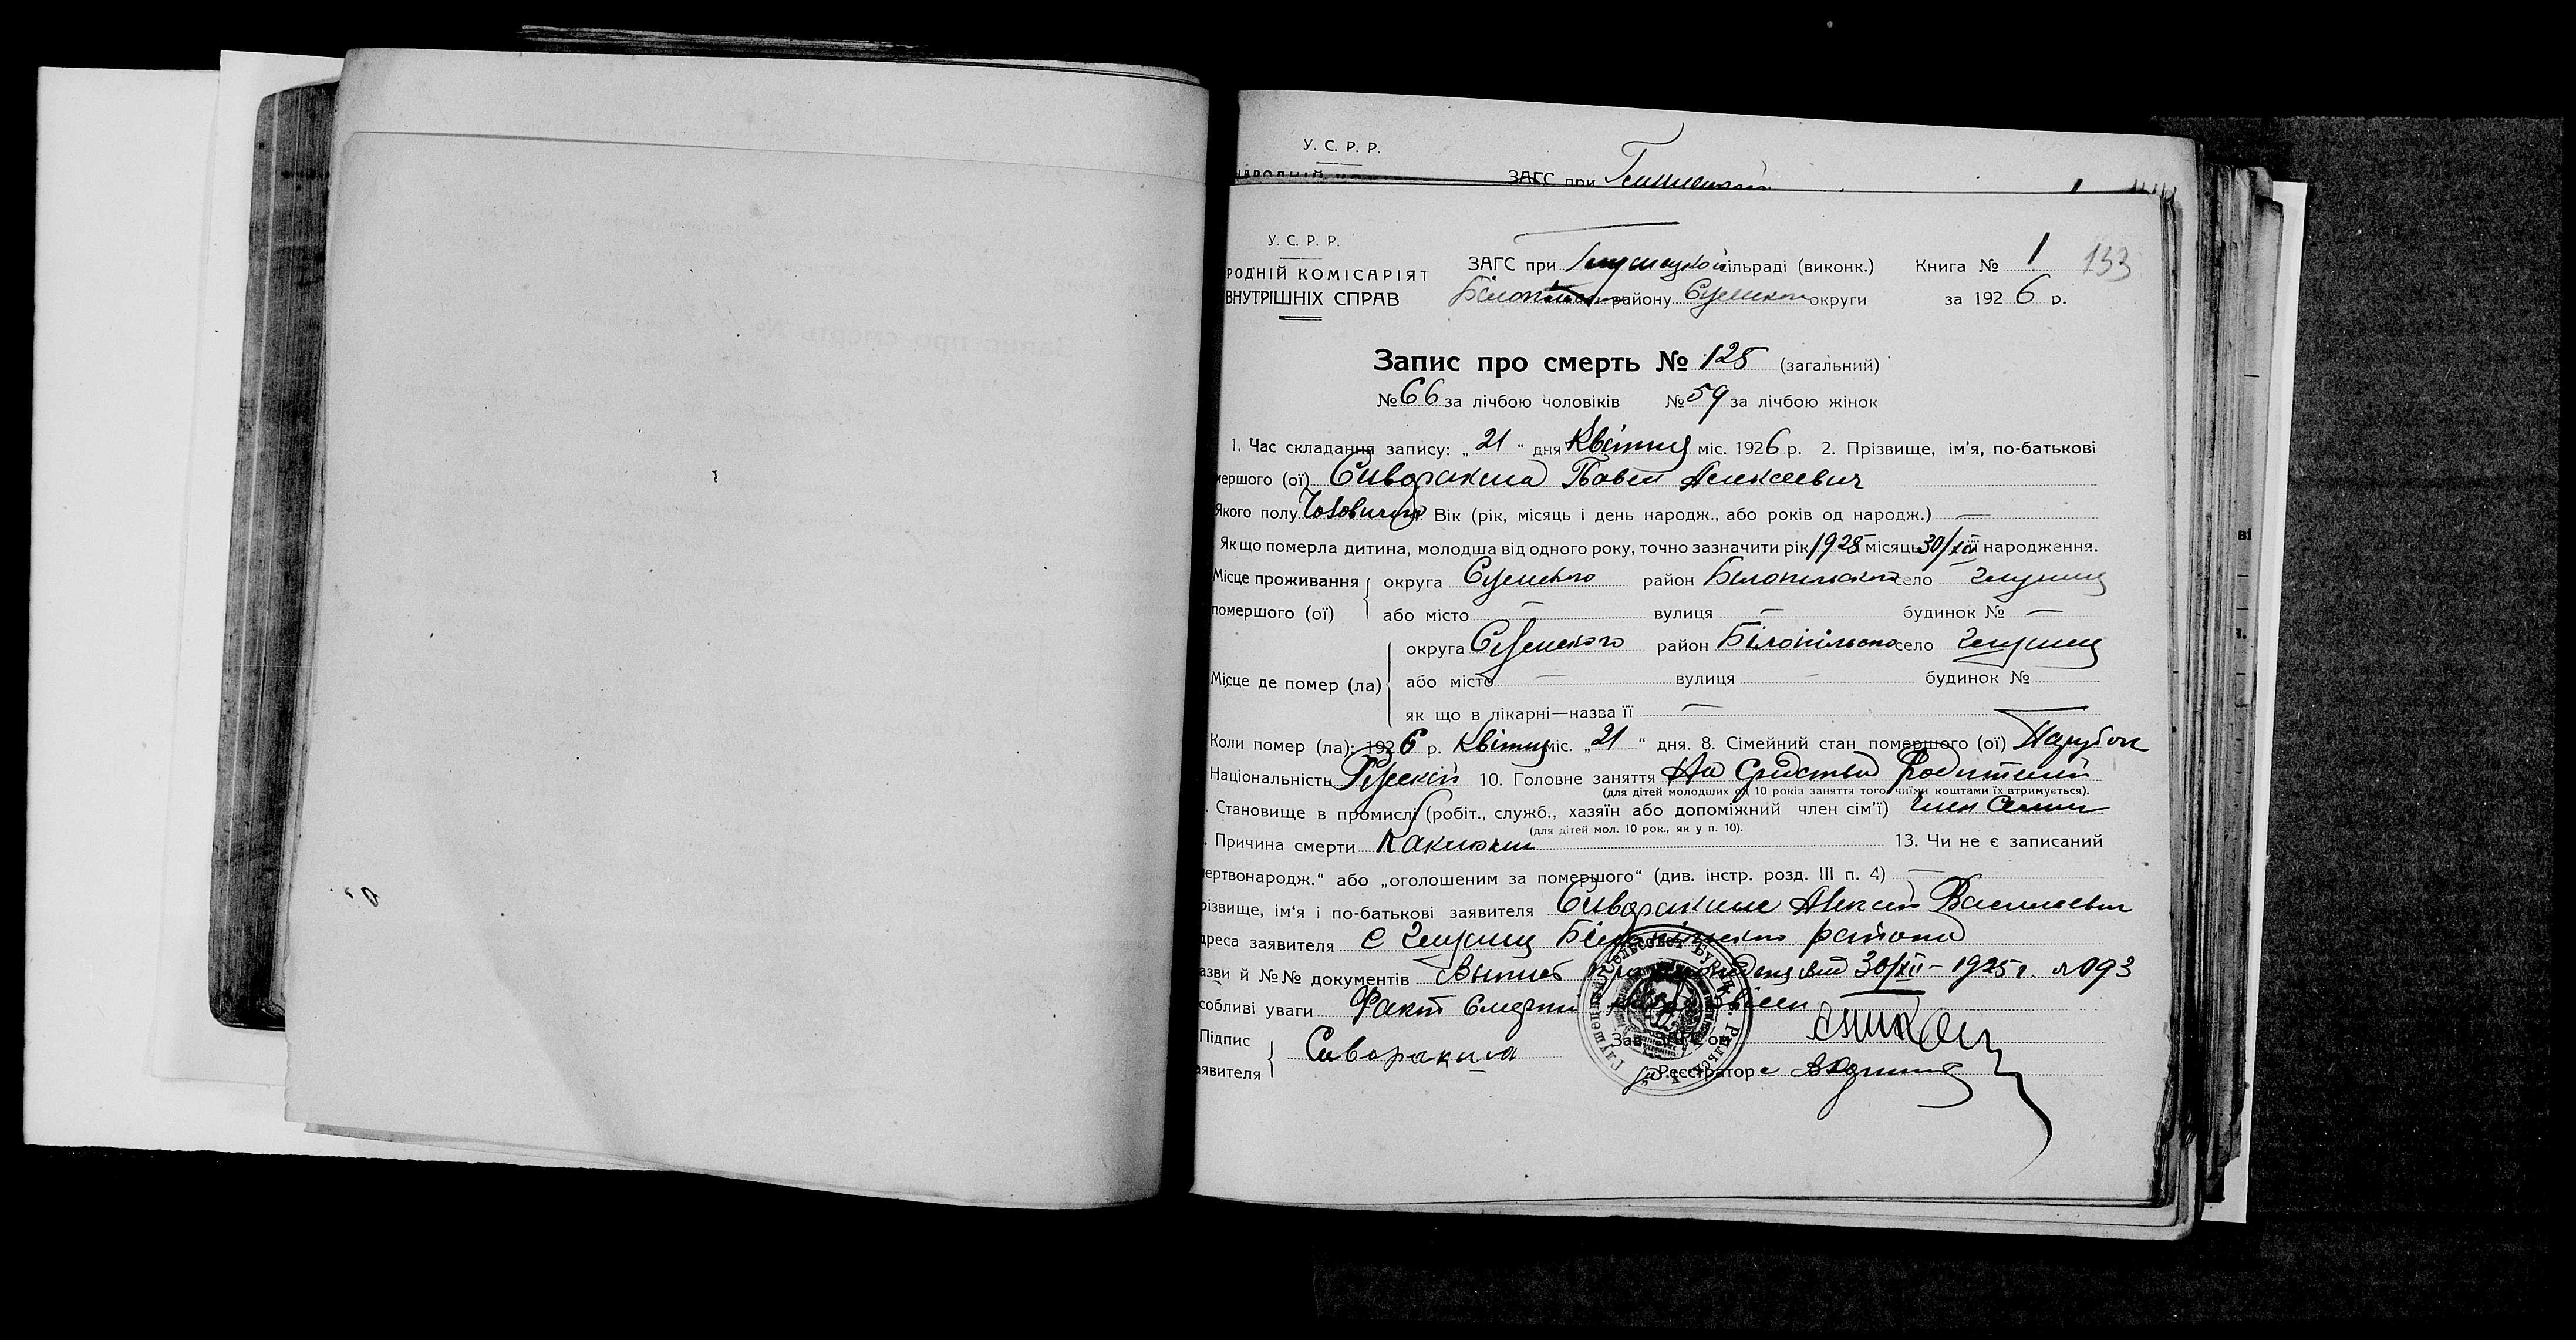 У. С. Р. Р.
ЗАГС при
У. С. Р. Р.
РОДНІЙ КОМІСАРІЯТ
ВНУТРІШНІХ СПРАВ
ЗАГС при Глушецкой сільраді (виконк.) Книга № 1 133
району Сумского округи за 1926 р.
Запис про смерть № 125 (загальний)
№ 66 за лічбою чоловіків № 59 за лічбою жінок
1. Час складання запису: „ 21 “ дня Квітня міс. 1926 р. 2. Прізвище, ім'я, по-батькові
мершого (ої) Сиворакша Павел Алексеевич
Якого полу Вік (рік, місяць і день народж., або років од народж.) —
Як що померла дитина, молодша від одного року, точно зазначити рік 1925 місяць 30/XII народження.
Місце проживання помершого (ої) округа Сумского район Білопільского село Глушец
або місто — вулиця — будинок № —
Місце де помер (ла) округа Сумского район Білопільско село Глушец
або місто — вулиця — будинок №
як що в лікарні—назва її —
Коли помер (ла): 1926 р. Квітня міс. „ 21 “ дня. 8. Сімейний стан помершого (ої) Парубок
Національність Руский 10. Головне заняття На Средства Родителей
(для дітей молодших од 10 років заняття того чиїми коштами їх втримується).
. Становище в промислі (робіт., служб., хазяїн або допоміжний член сім'ї) член Семии
(для дітей мол. 10 рок., як у п. 10).
. Причина смерти Каклюши 13. Чи не є записаний
ертвонародж.“ або „оголошеним за помершого“ (див. інстр. розд. III п. 4) —
різвище, ім'я і по-батькові заявителя Сиворакша Алексей Василевич
дреса заявителя с Глушец Білопільского района
азви й №№ документів Выпись 30/XII – 1925 г. № 93
собливі уваги Факт Смерти
Підпис
аявителя Сиворакша
Зав. ЗАГС'ом
Реєстратор